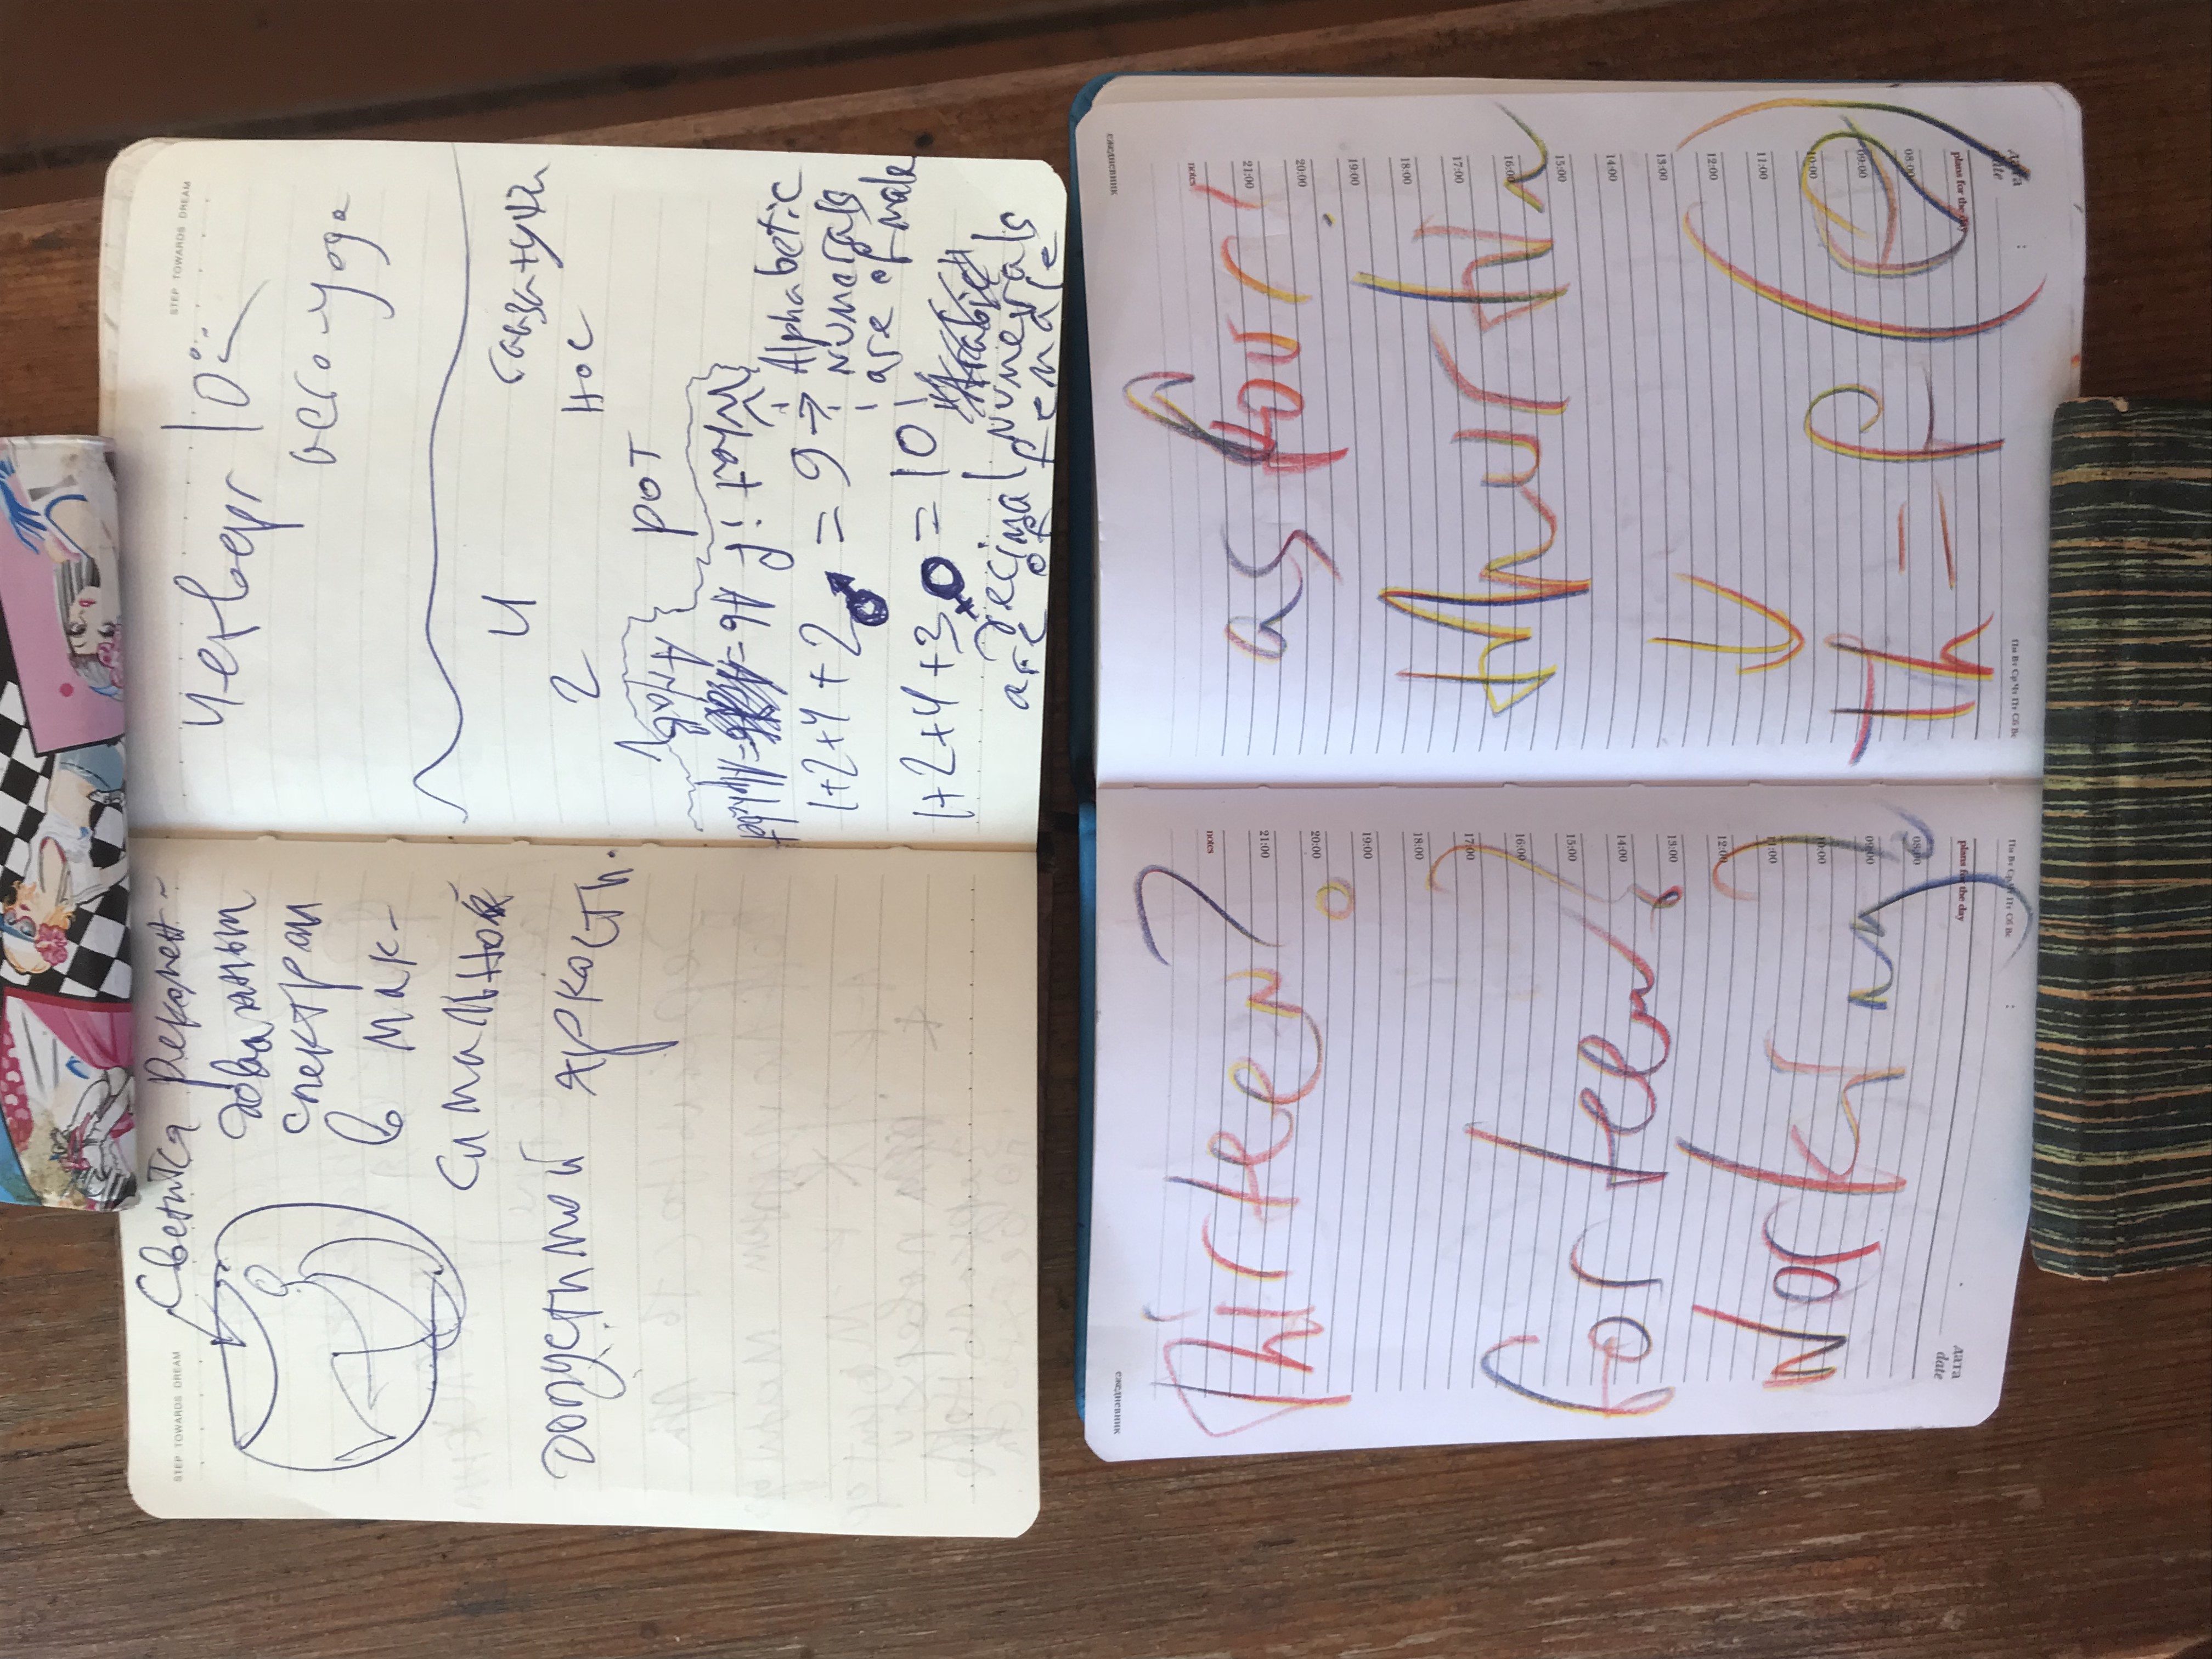 STEP TOWARDS DREAM
Светится рекомен-
дованным
спектром
в мак-
симальной
допустимой яркости.
STEP TOWARDS DREAM
Четверг 10
aero-yoga
4 глаза+уши
2 нос
1 рот
Arab
What if Ab = = Alphabet
1+2+4+2♂ = 9 → Alphabetic
numerals
are of male
1+2+4+3♀ = 10
"Arabic"
decimal numerals
are of female
ежедневник
Thirteen?
forteen?
working?
notes
21:00
20:00
19:00
18:00
17:00
16:00
15:00
14:00
13:00
12:00
11:00
10:00
09:00
08:00
plans for the day
дата
date
Пн Вт Ср Чт Пт Сб Вс
ежедневник
as four!
↓
th = f(
notes
21:00
20:00
19:00
18:00
17:00
16:00
15:00
14:00
13:00
12:00
11:00
10:00
09:00
08:00
plans for the day
дата
date
Пн Вт Ср Чт Пт Сб Вс